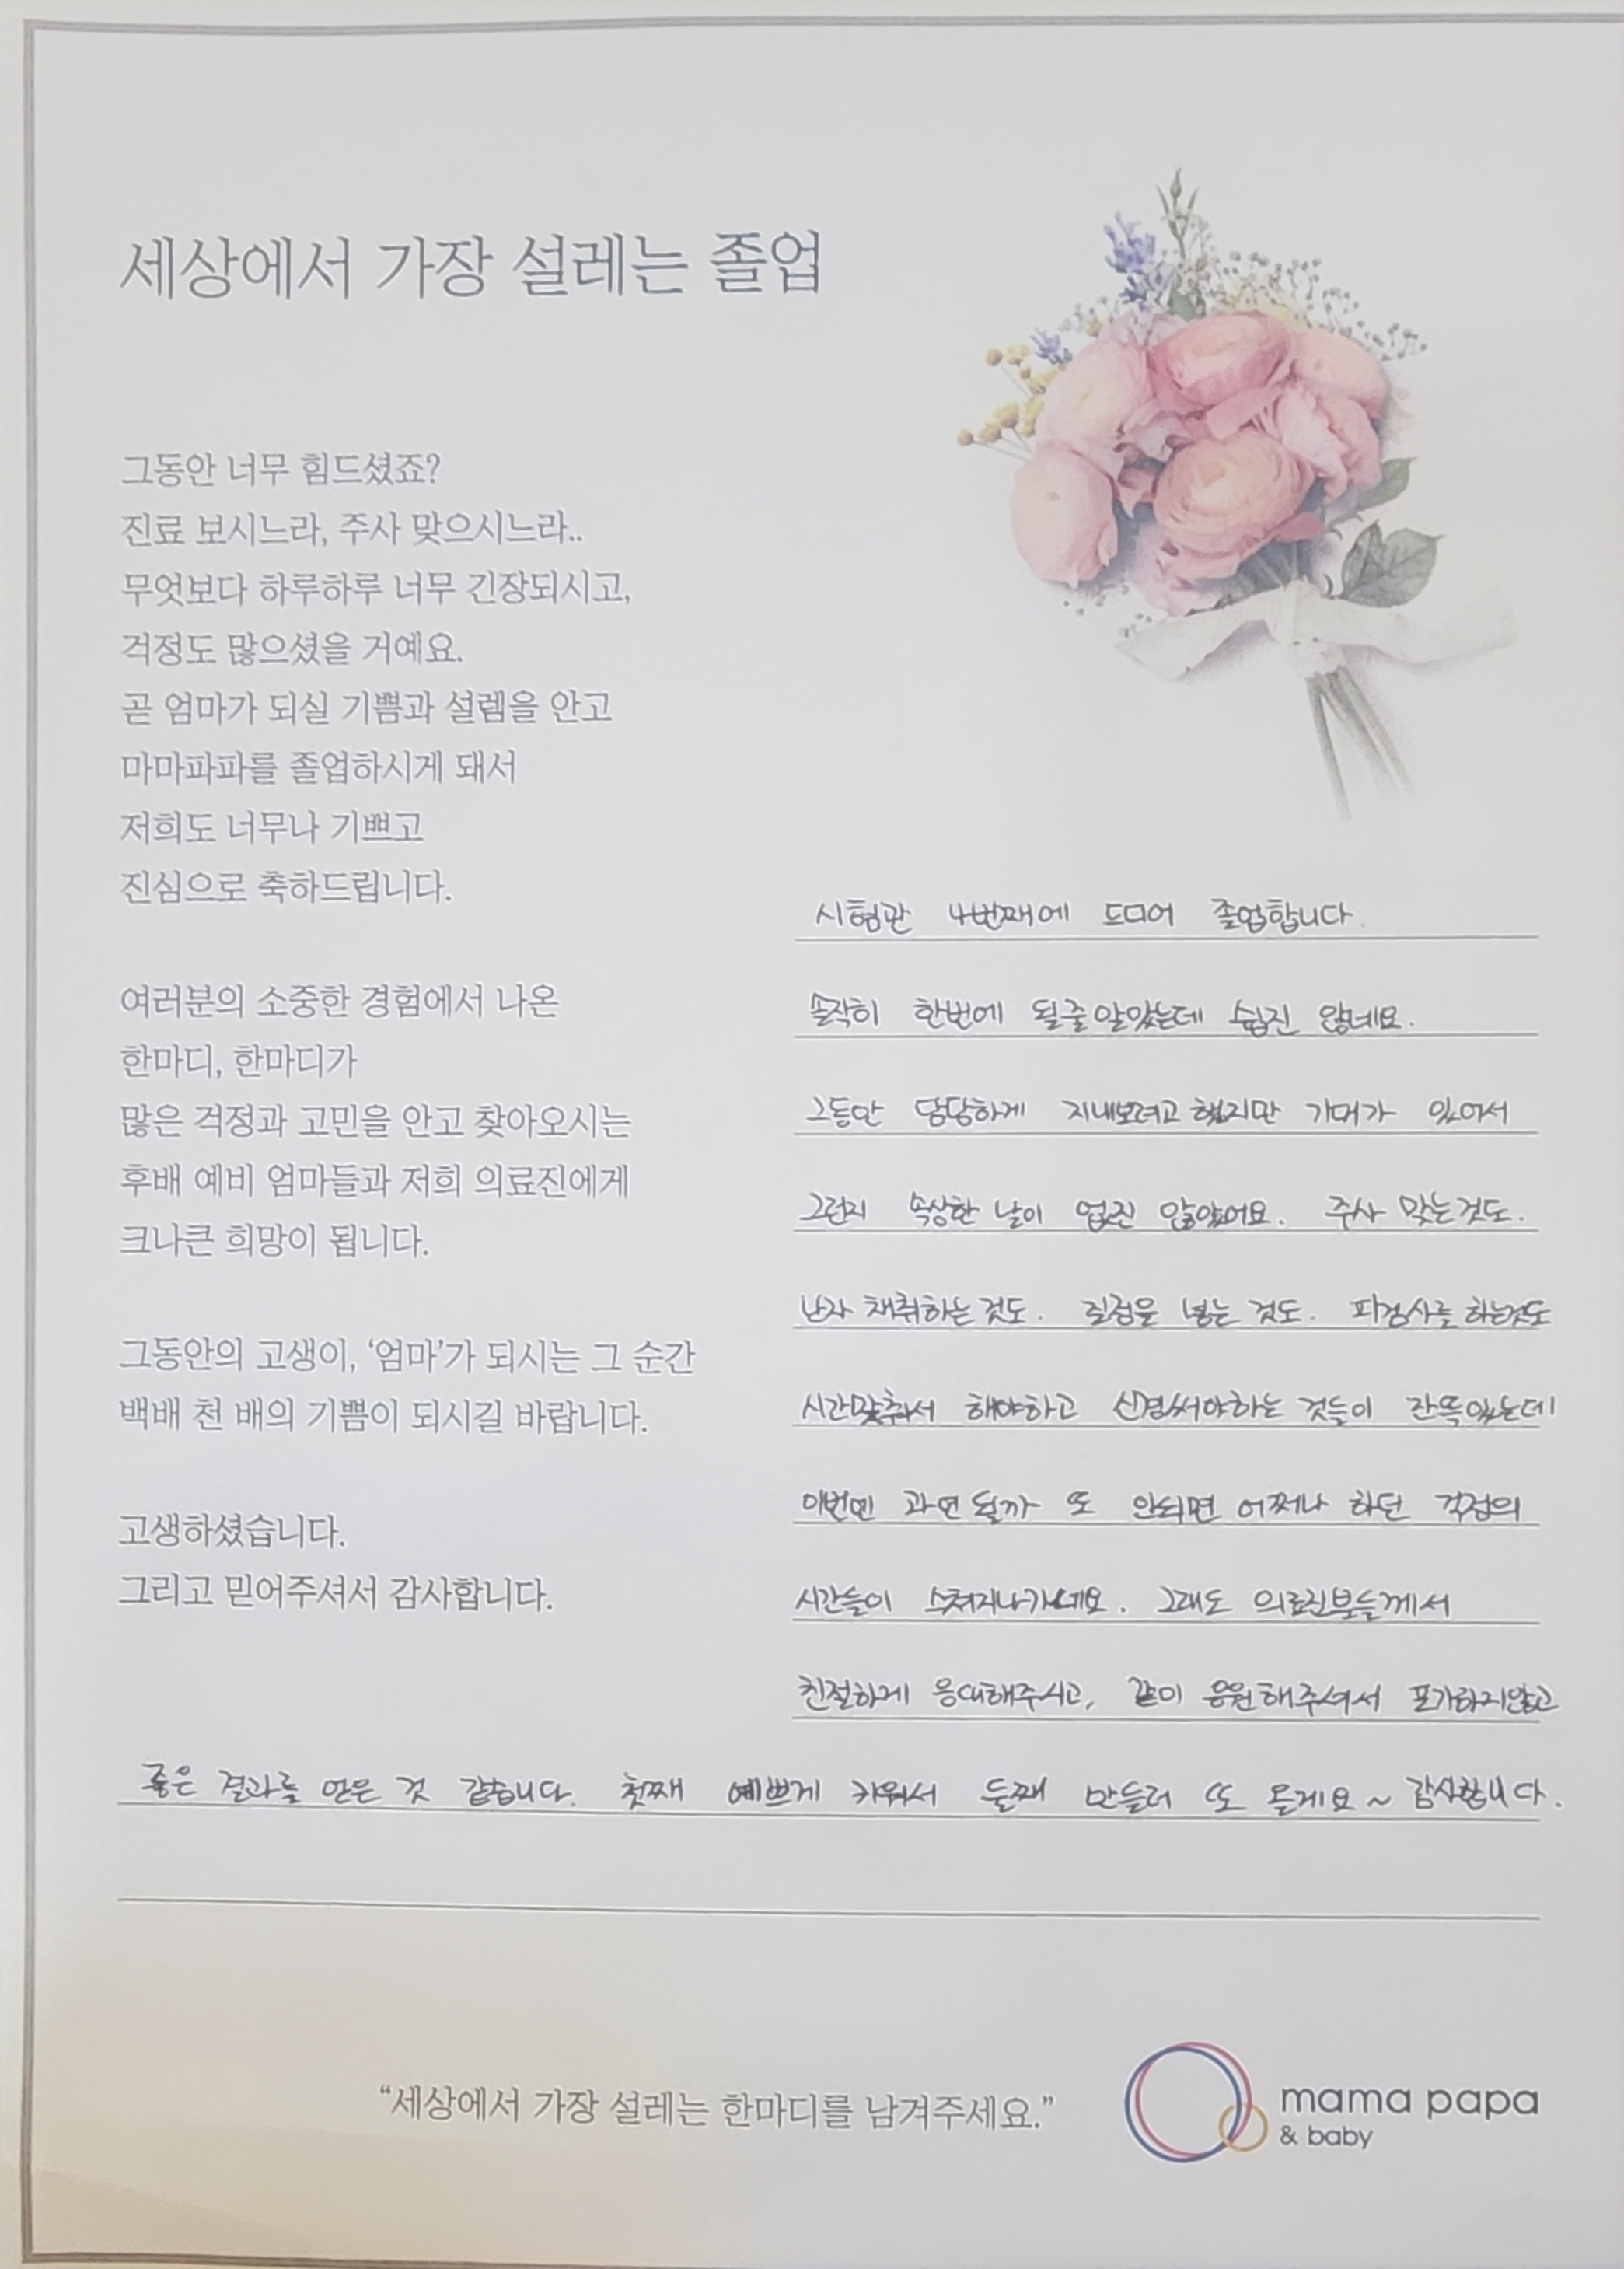 세상에서 가장 설레는 졸업
그동안 너무 힘드셨죠?
진료 보시느라, 주사 맞으시느라..
무엇보다 하루하루 너무 긴장되시고,
걱정도 많으셨을 거예요.
곧 엄마가 되실 기쁨과 설렘을 안고
마마파파를 졸업하시게 돼서
저희도 너무나 기쁘고
진심으로 축하드립니다.
여러분의 소중한 경험에서 나온
한마디, 한마디가
많은 걱정과 고민을 안고 찾아오시는
후배 예비 엄마들과 저희 의료진에게
크나큰 희망이 됩니다.
그동안의 고생이, ‘엄마’가 되시는 그 순간
백배 천 배의 기쁨이 되시길 바랍니다.
고생하셨습니다.
그리고 믿어주셔서 감사합니다.
시험관 4번째에 드디어 졸업합니다.
솔직히 한번에 될줄 알았는데 쉽진 않네요.
그동안 담담하게 지내보려고 했지만 기대가 있어서
그런지 속상한 날이 없진 않았어요. 주사 맞는것도.
난자 채취하는것도. 질정을 넣는 것도. 피검사를 하는것도
시간맞춰서 해야하고 신경써야하는 것들이 잔뜩있는데
이번엔 과연 될까 또 안되면 어쩌나 하던 걱정의
시간들이 스쳐지나가네요. 그래도 의료진분들께서
친절하게 응대해주시고, 같이 응원해주셔서 포기하지않고
좋은 결과를 얻은 것 같습니다. 첫째 예쁘게 키워서 둘째 만들러 또 올게요~ 감사합니다.
“세상에서 가장 설레는 한마디를 남겨주세요.”
mama papa
& baby